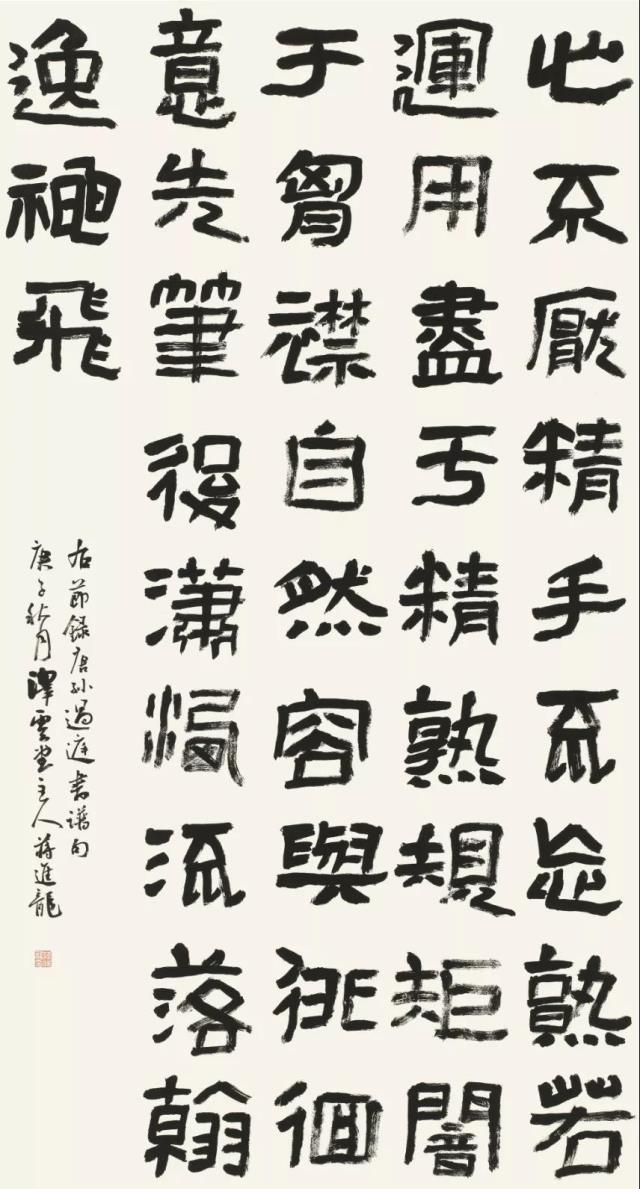 心不厭精手不忘熟若
運用盡于精熟規矩闇
于胷襟自然容與徘徊
意先筆後瀟流落翰
逸神飛
右節録唐孙過庭書譜句
庚子秋月潭雲堂主人蔣進龍